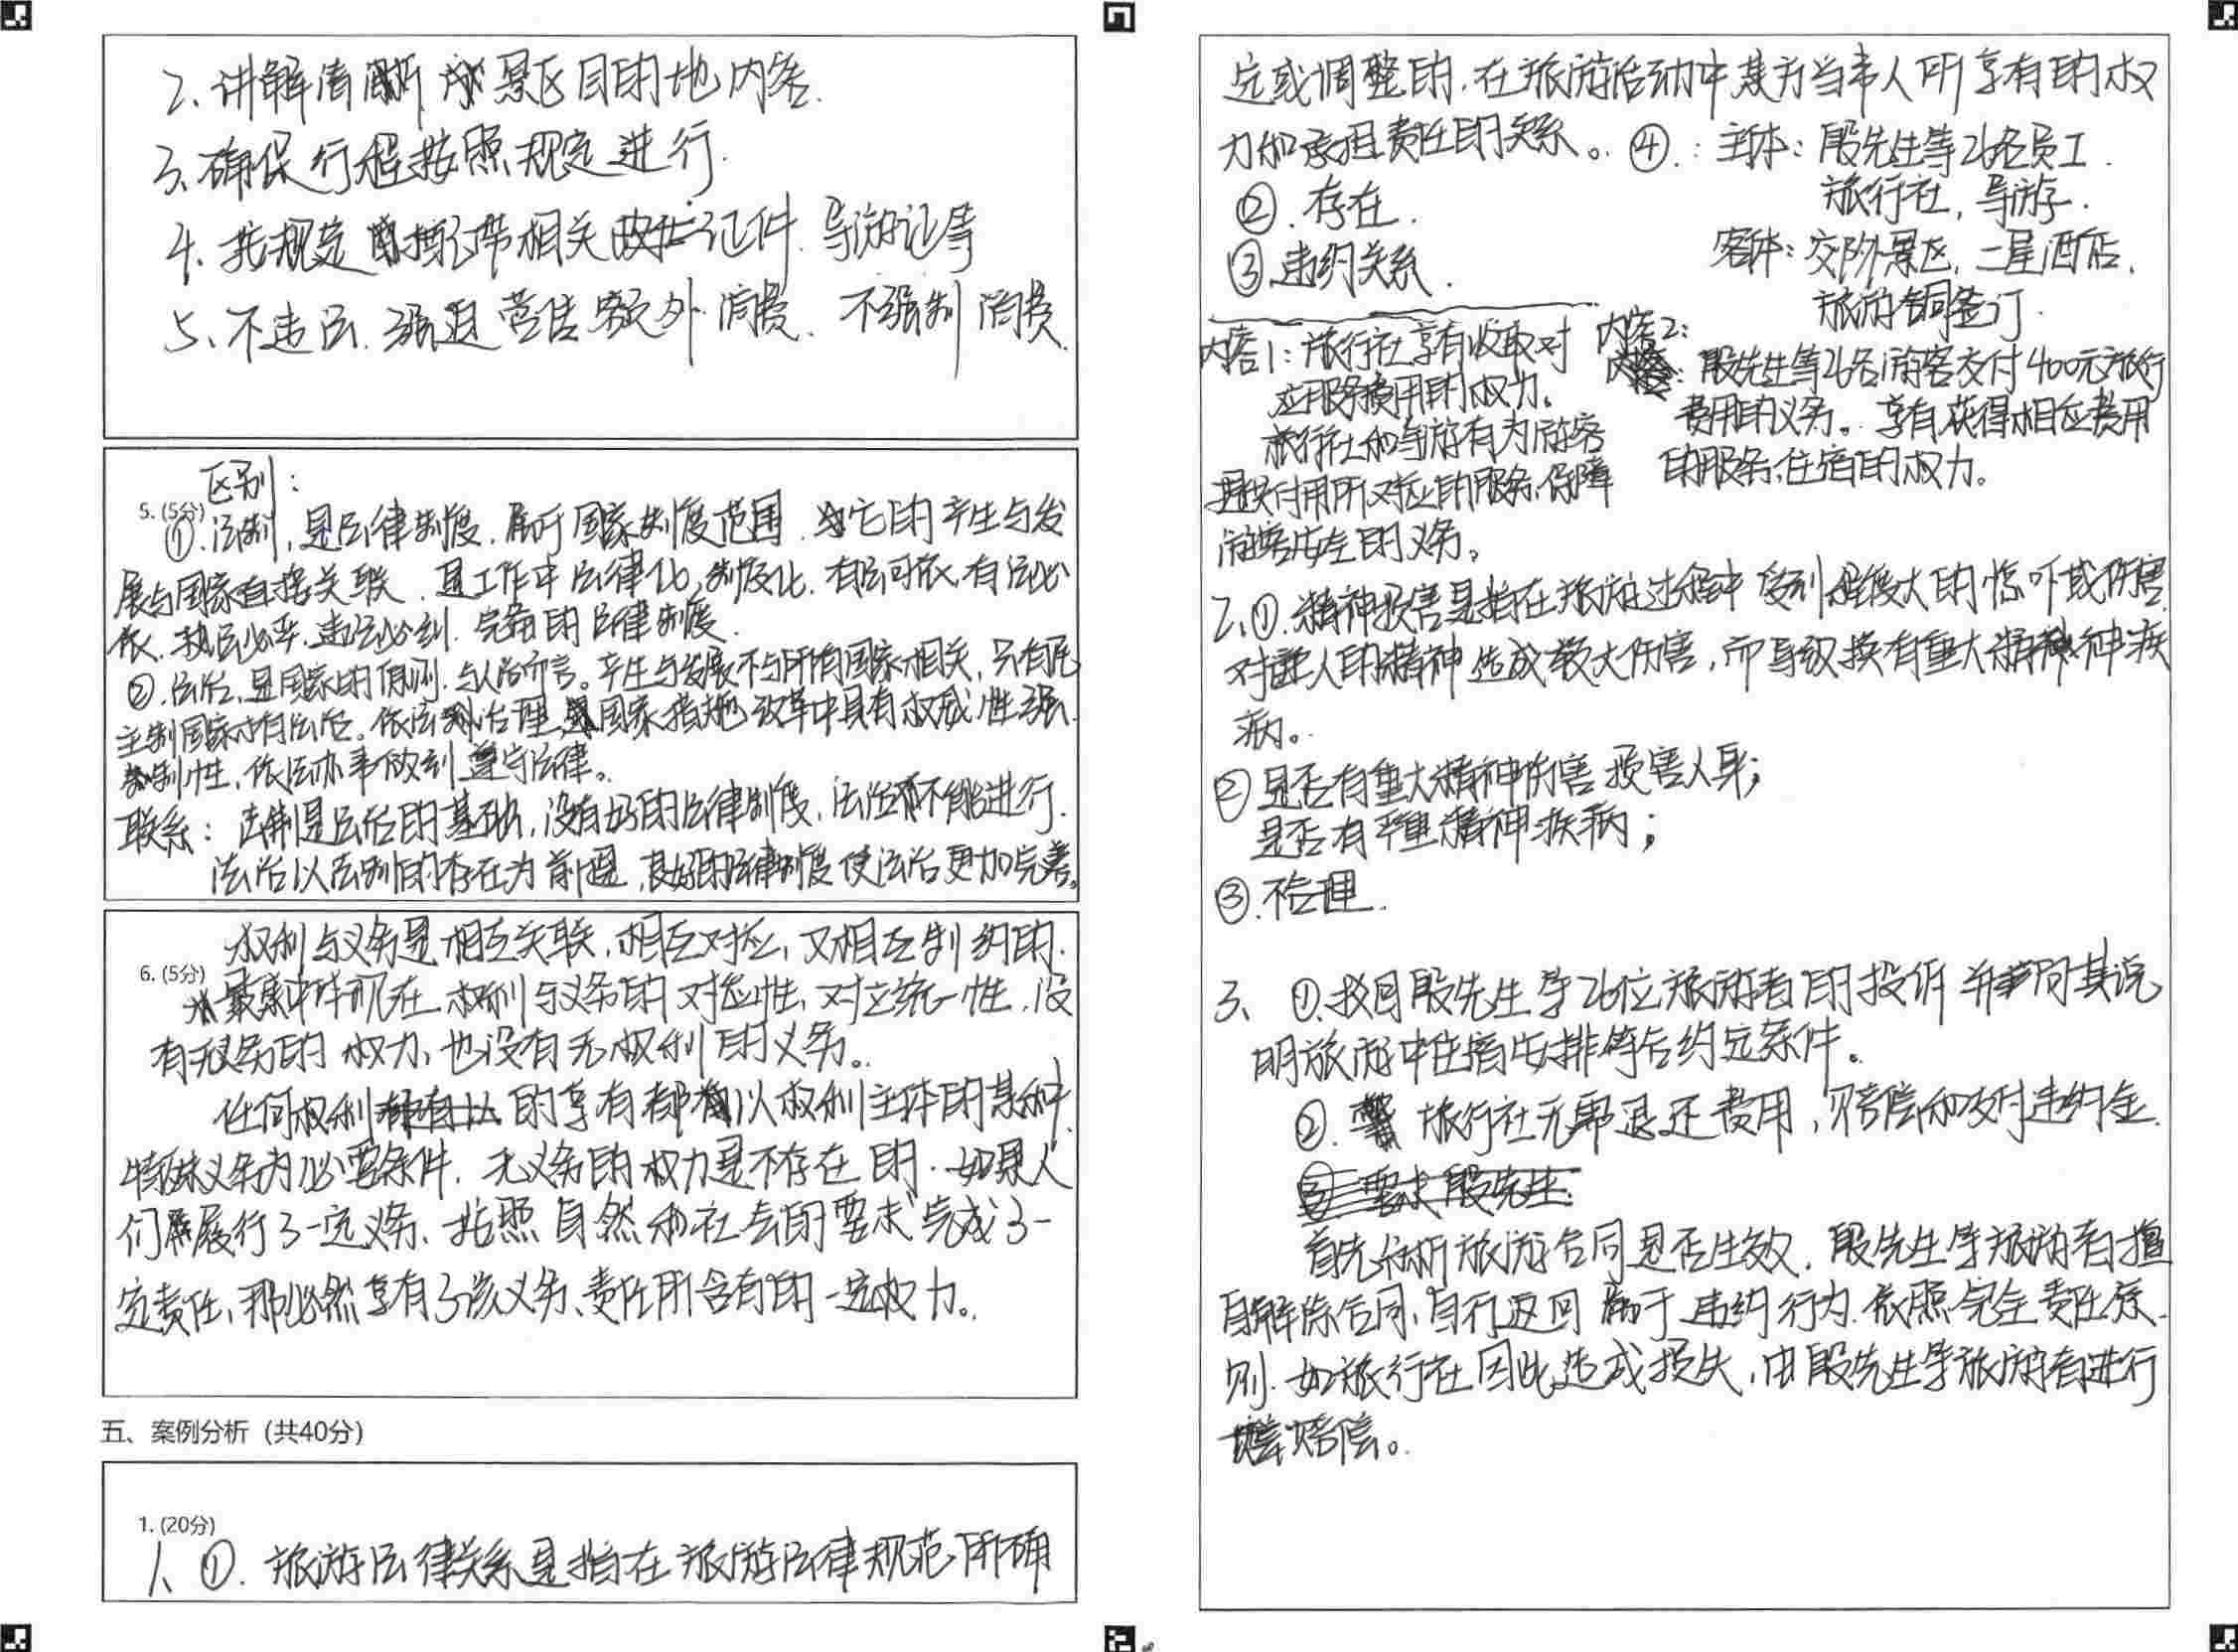 2、讲解清晰 景区目的地内容.
3、确保行程按照规定进行.
4、按规定 佩带相关 证件. 导游证等
5、不违法. 强迫营售额外消费. 不强制消费.
区别：
5. (5分)
①.法制, 是法律制度. 属于国家制度范围. 它的产生与发
展与国家直接关联. 且工作中法律化, 制度化. 有法可依, 有法必
依. 执法必严. 违法必纠. 完备的法律制度.
②. 法治, 是国家的 与人治而言。产生与发展不与所有国家相关, 只有民
主制国家才有法治。依法治理, 国家措施改革中具有权威性强
制性, 依法办事做到遵守法律。
联系：法制是法治的基础, 没有好的法律制度, 法治不能进行.
法治以法制的存在为前提, 良好的法律制度使法治更加完善。
权利与义务是相互关联, 相互对应, 又相互制约的.
6. (5分)
最集中体现在 权利与义务的对应性, 对立统一性, 没
有无义务的权力, 也没有无权利的义务。
任何权利 的享有都以权利主体的某种
特殊义务为必要条件. 无义务的权力是不存在的. 如果人
们履行了一定义务、按照自然和社会的要求完成了一
定责任, 那必然享有了该义务、责任所含有的一定权力。
五、案例分析（共40分）
1. (20分)
1、①. 旅游法律关系是指在旅游法律规范所确
定或调整的. 在旅游活动中某方当事人所享有的权
力和承担责任的关系。 ④.：主体：殷先生等26名员工.
旅行社, 导游.
②. 存在.
客体：交际外景区, 二星酒店.
③. 违约关系.
旅游合同签订.
内容1：旅行社享有收取对
应服务费用的权力。
旅行社和导游有为游客
提供付用所对应的服务, 保障
游客安全的义务。
内容2：
殷先生等26名游客交付400元旅行
费用的义务。享有获得相应费用
的服务, 住宿的权力。
2、①. 精神损害是指在旅游过程中受到程度大的惊吓或伤害.
对 人的精神造成较大伤害, 而导致换有重大精神疾
病。
② 是否有重大精神伤害损害人身;
是否有严重精神疾病;
③. 不合理.
3、①. 驳回殷先生等26位旅游者的投诉并 同其说
明旅游中住宿安排符合约定条件。
②. 旅行社无需退还费用, 赔偿和支付违约金.
③ 要求殷先生.
首先分析旅游合同是否生效. 殷先生等旅游者擅
自解除合同, 自行返回属于违约行为. 依照完全责任原
则. 如旅行社因此造成损失, 由殷先生等旅游者进行
赔偿。